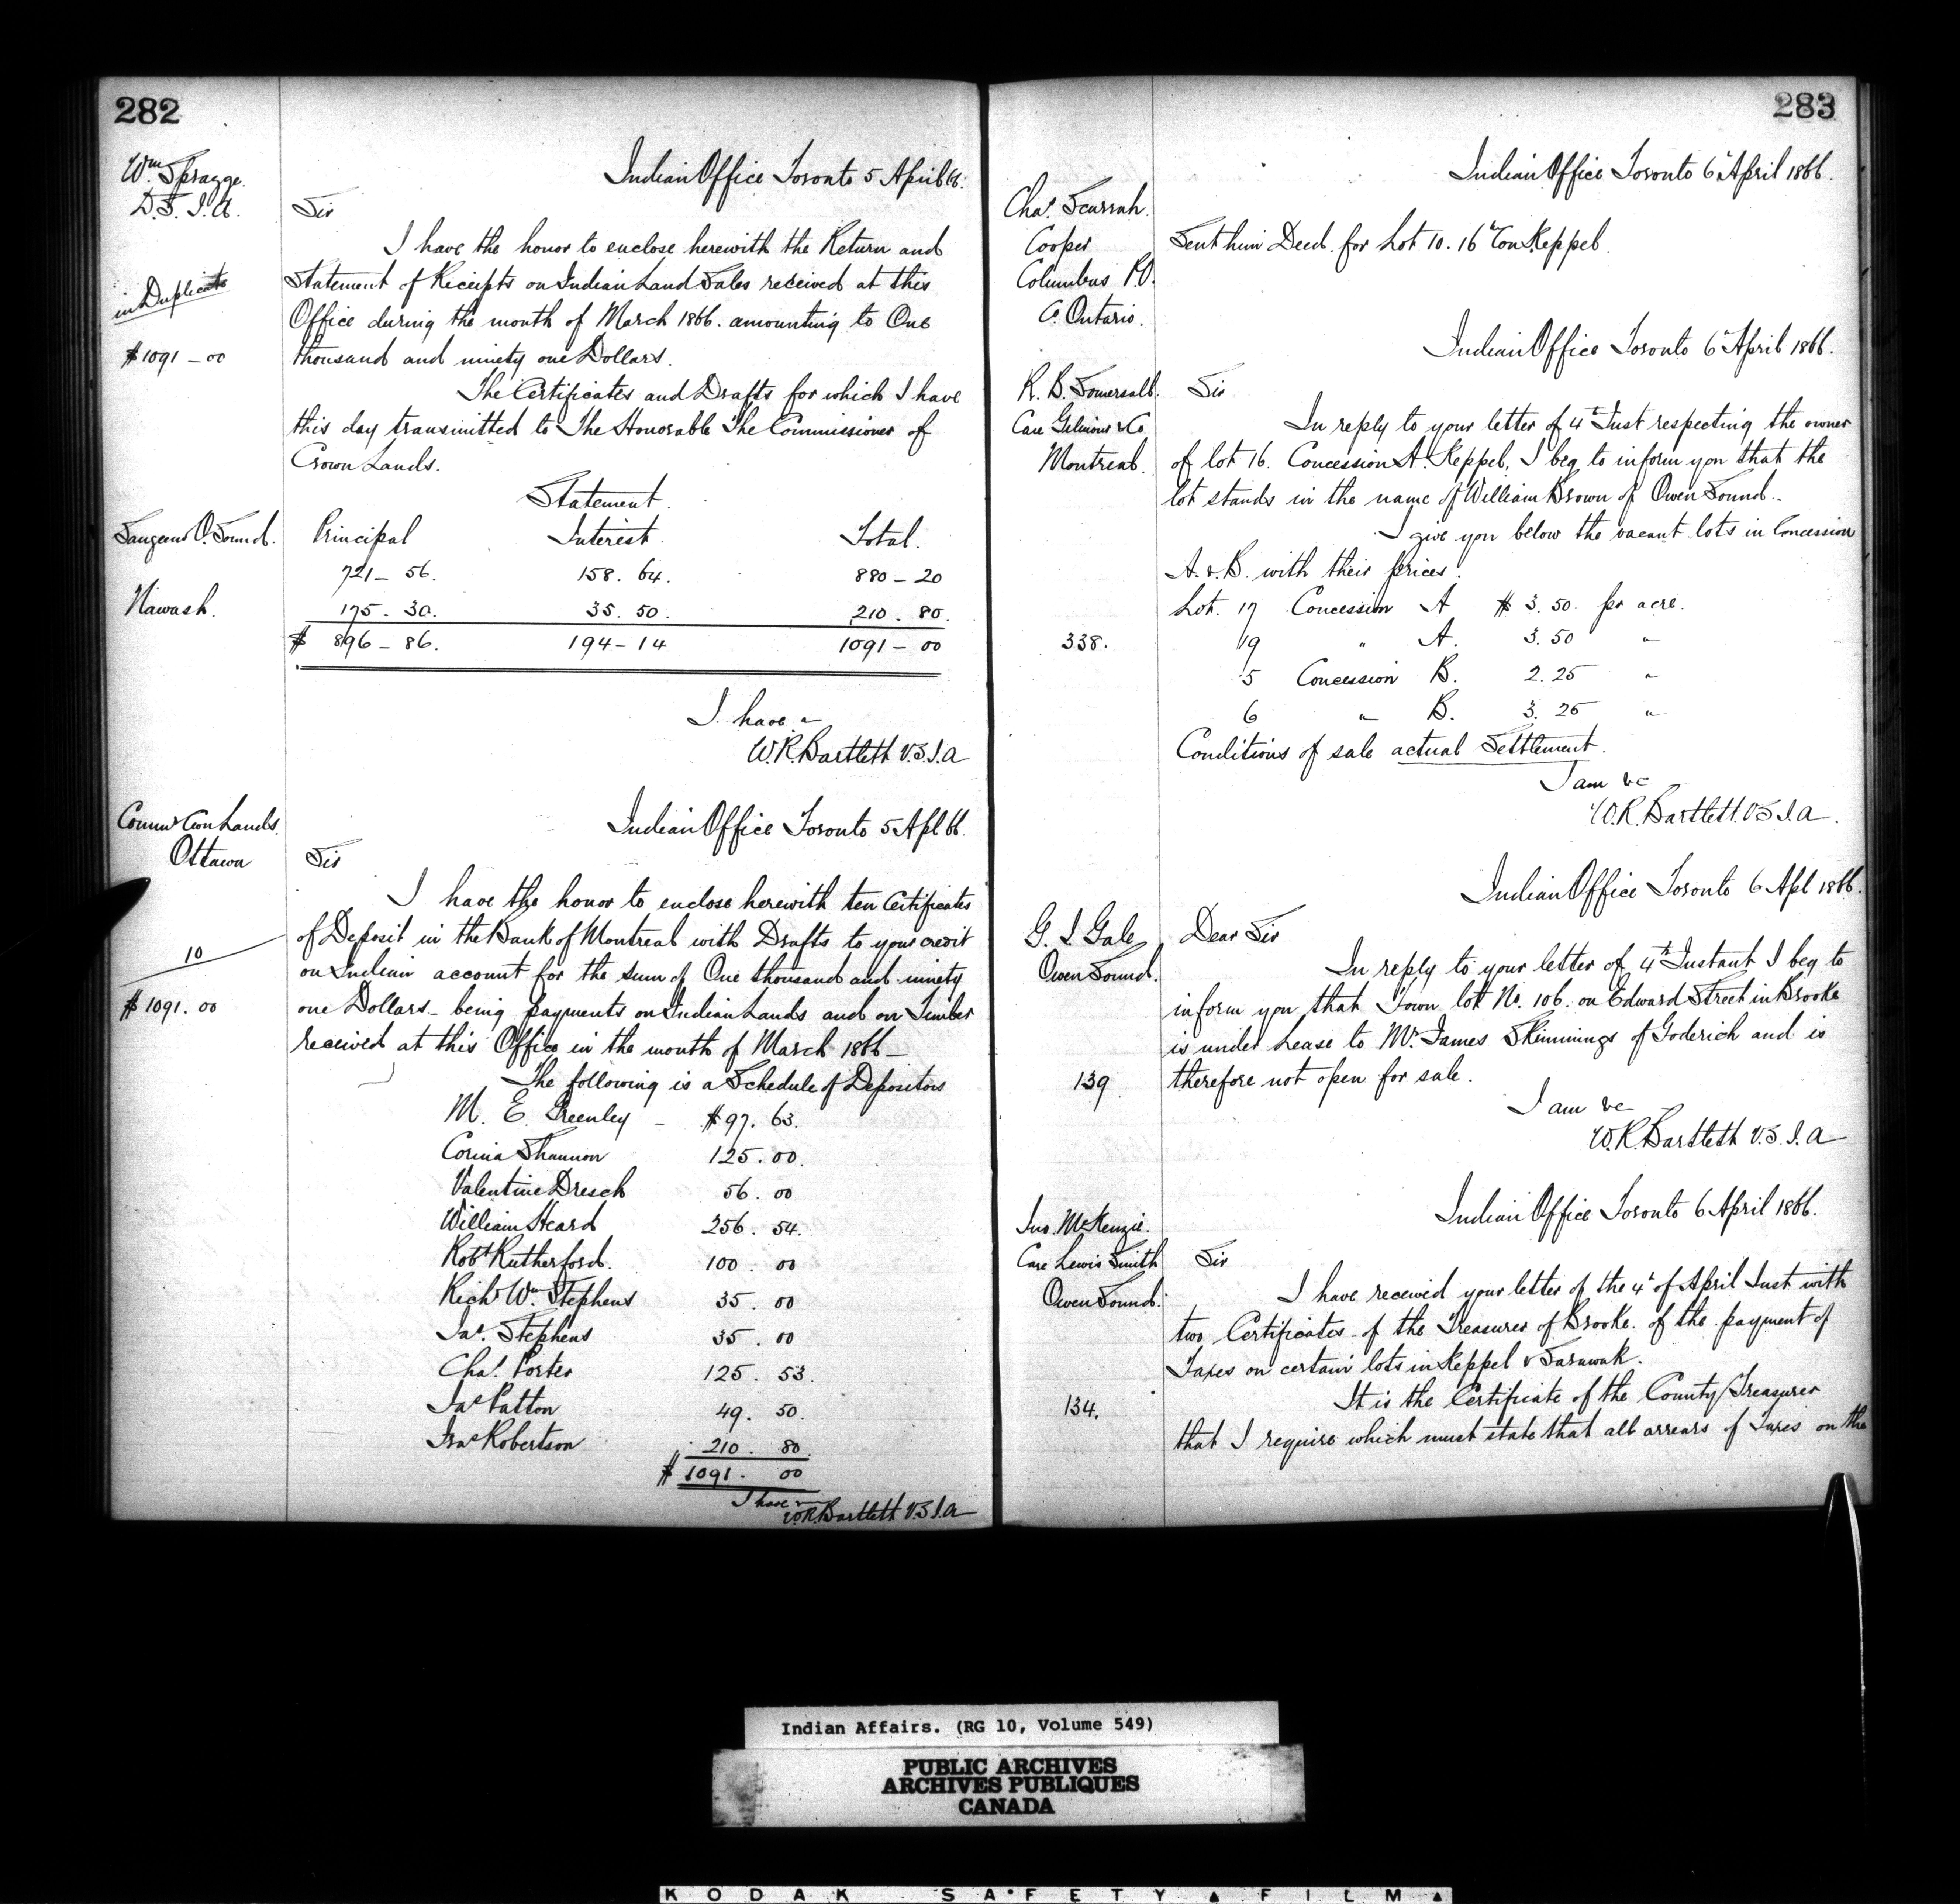 282
Wm Spragge.
D. S. I. A.
Indian Office Toronto 5 April 66.
Sir
I have the honor to enclose herewith the Return and
in Duplicate
Statement of Receipts on Indian Land Sales received at this
Office during the month of March 1866. amounting to One
$1091-00
thousand and ninety one Dollars.
The Certificates and Drafts for which I have
this day transmitted to The Honorable The Commissioner of
Crown Lands.
Statement.
Saugeen O. Sound. Principal Interest. Total.
721-56. 158.64. 880-20
Nawash. 175.30. 35.50. 210.80.
$ 896-86. 194-14 1091-00
I have
W.R. Bartlett V.S.I.A
Commr Crn Lands.
Ottawa
Indian Office Toronto 5 Apl 66.
Sir
I have the honor to enclose herewith ten Certificates
10
of Deposit in the Bank of Montreal with Drafts to your credit
on Indian account for the sum of One thousand and ninety
$1091.00
one Dollars - being payments on Indian Lands and on Timber
received at this Office in the month of March 1866 -
The following is a Schedule of Depositors
M. E. Greenley - $97.63.
Shannon 125.00.
Valentine Dresch 56.00
William Heard 256.54.
Robt Rutherford. 100.00
Richd Wm Stephens 35.00
Jas. Stephens 35.00
Chas. Porter 125.53.
Jas Patton 49.50.
Robertson 210.80.
$ 1091.00
I have
W.R. Bartlett V.S.I.A
283
Indian Office Toronto 6th April 1866.
Chas. Scurrah.
Cooper
Columbus P.O.
C. Ontario.
Sent him Deed for Lot 10. 16th Con Keppel.
Indian Office Toronto 6th April 1866.
R. B. Somersall.
Care Gilmour & Co
Montreal.
Sir
In reply to your letter of 4th Inst respecting the owner
of lot 16. Concession A. Keppel, I beg to inform you that the
lot stands in the name of William Brown of Owen Sound.-
I give you below the vacant lots in Concession
A. & B. with their prices.
Lot. 17 Concession A $3.50. pr acre.
338. 19 " A. 3.50 "
5 Concession B. 2.25 "
6 " B. 3.25 "
Conditions of sale actual Settlement.
I am &c
W.R. Bartlett. V.S.I.A.
Indian Office Toronto 6 Apl 1866.
G. I. Gale
Owen Sound.
Dear Sir
In reply to your letter of 4th Instant I beg to
inform you that Town lot No. 106. on Edward Street in Brooke
is under Lease to Mr James Skimmings of Goderich and is
139
therefore not open for sale.
I am &c
W.R. Bartlett V.S.I.A
Indian Office Toronto 6 April 1866.
Jno. McKenzie.
Care Lewis Smith
Owen Sound.
Sir
I have received your letter of the 4th of April Inst with
two Certificates of the Treasurer of Brooke. of the payment of
Taxes on certain lots in Keppel & Sarawak.
134.
It is the Certificate of the County Treasurer
that I require which must state that all arrears of Taxes on the
Indian Affairs. (RG 10, Volume 549)
PUBLIC ARCHIVES
ARCHIVES PUBLIQUES
CANADA
KODAK SAFETY FILM